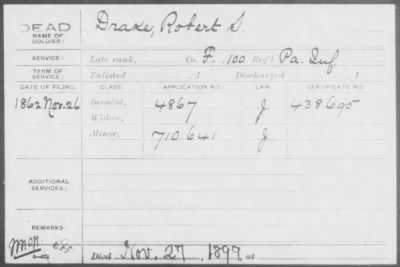 DEAD
NAME OF SOLDIER: Drake, Robert S.
SERVICE: Late rank, Co. F. 100 Reg't Pa. Inf
TERM OF SERVICE: Enlisted , 1 Discharged , 1
DATE OF FILING. CLASS. APPLICATION NO. LAW. CERTIFICATE NO.
1862 Nov. 26 Invalid, 4867 J 438695
Widow,
Minor, 710.641 J
ADDITIONAL SERVICES:
REMARKS:
Died Nov. 27, 1899 at